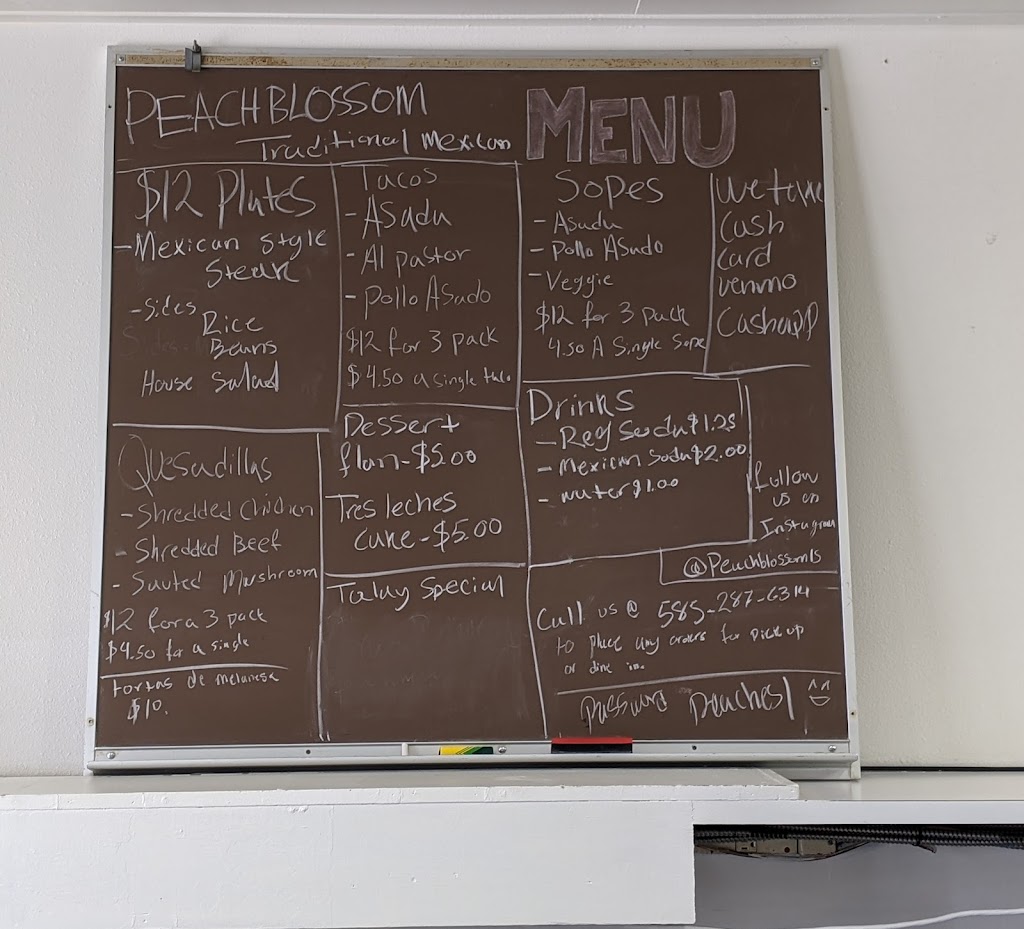 PEACHBLOSSOM
Traditional Mexican
MENU
$12 Plates
- Mexican Style
Steak
- Sides
Rice
Beans
House Salad
Tacos
- Asada
- Al pastor
- Pollo Asado
$12 for 3 pack
$4.50 a single taco
Sopes
- Asada
- Pollo Asado
- Veggie
$12 for 3 pack
4.50 A Single Sope
We take
Cash
Card
venmo
Cashapp
Quesadillas
- Shredded Chicken
- Shredded Beef
- Sauted Mushroom
$12 for a 3 pack
$4.50 for a single
tortas de melanesa
$10.
Dessert
flan - $5.00
Tres leches
cake - $5.00
Today Special
Drinks
- Reg Soda $1.25
- Mexican Soda $2.00
- water $1.00
follow
us on
Instagram
@Peachblossom1s
Call us @ 585-287-6314
to place any orders for pick up
or dine in.
Password Peaches1